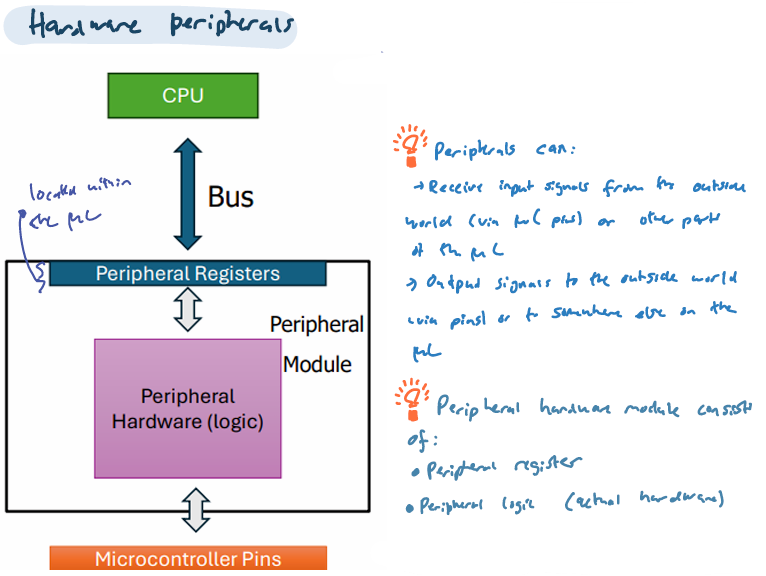 Hardware peripherals
CPU
Bus
located within
the μC
Peripheral Registers
Peripheral
Module
Peripheral
Hardware (logic)
Microcontroller Pins
Peripherals can:
→ Receive input signals from the outside
world (via μC pins) or other parts
of the μC
→ Output signals to the outside world
(via pins) or to somewhere else on the
μC
Peripheral hardware module consists
of:
• Peripheral register
• Peripheral logic (actual hardware)